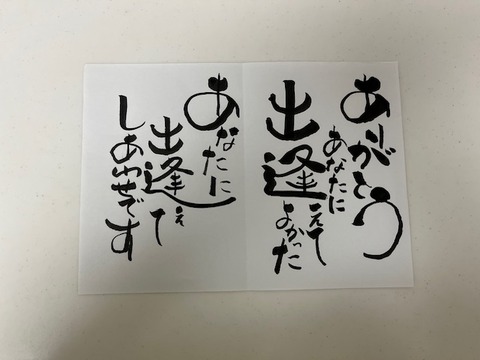 ありがとう
あなたに
出逢えて
よかった
あなたに
出逢えて
しあわせです